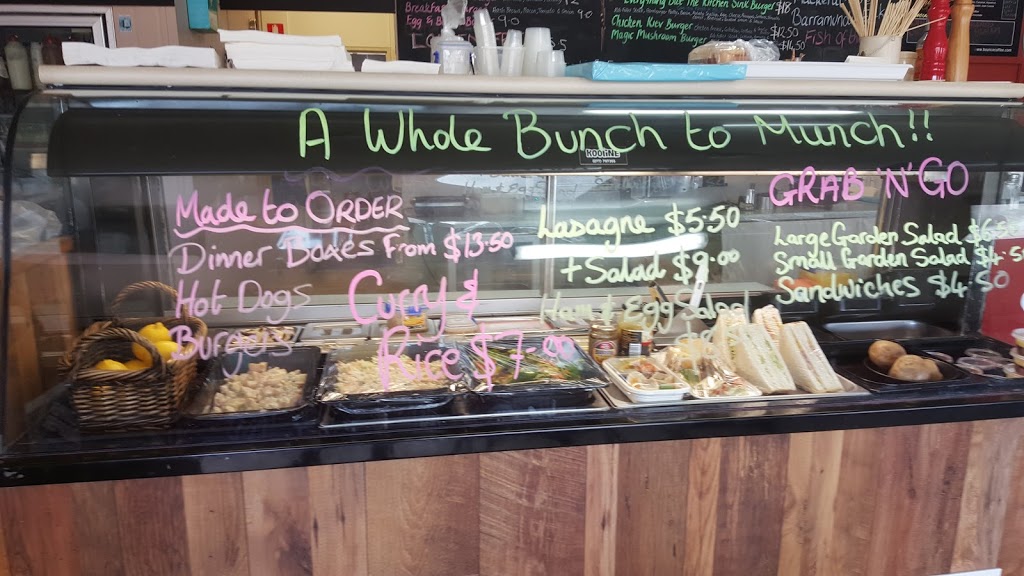 Everything But The Kitchen Sink Burger $18
Chicken Kiev Burger
Magic Mushroom Burger
$12.50
$14.50
Barramundi
Fish of
Breakfast
Egg & B
A Whole Bunch to Munch!!
KOOLINE
GRAB 'N' GO
Made to ORDER
Dinner Boxes From $13.50
Hot Dogs
Burgers
Curry &
Rice $7.00
Lasagne $5.50
+ Salad $9.00
Ham & Egg Salad
Large Garden Salad $6.5
Small Garden Salad $4.5
Sandwiches $4.50